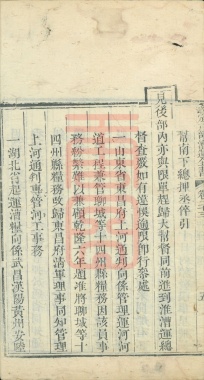 幫南下總押倅引
見後部內亦與限單趕歸大幫督同前進到淮漕運總
督查覈如有遲悞逾限即行參處
一山東省東昌府上河通判向係管理運河河
道工程兼管聊城等十四州縣糧務因該員事
務紛繁難以兼顧乾隆六年題准將聊城等十
四州縣糧務改歸東昌府清軍理事同知管理
上河通判專管河工事務
一湖北省起運漕糧向係武昌漢陽黃州安陸